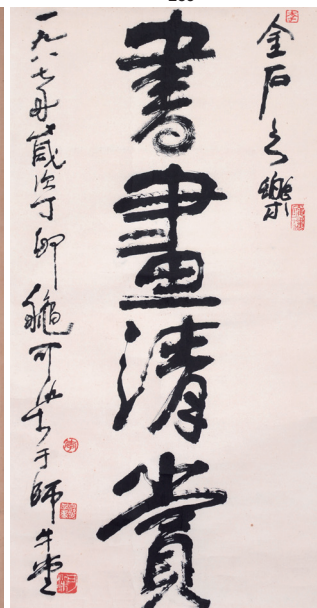 金石之樂
書畫清賞
一九八七年歲次丁卯龝可染于師牛堂